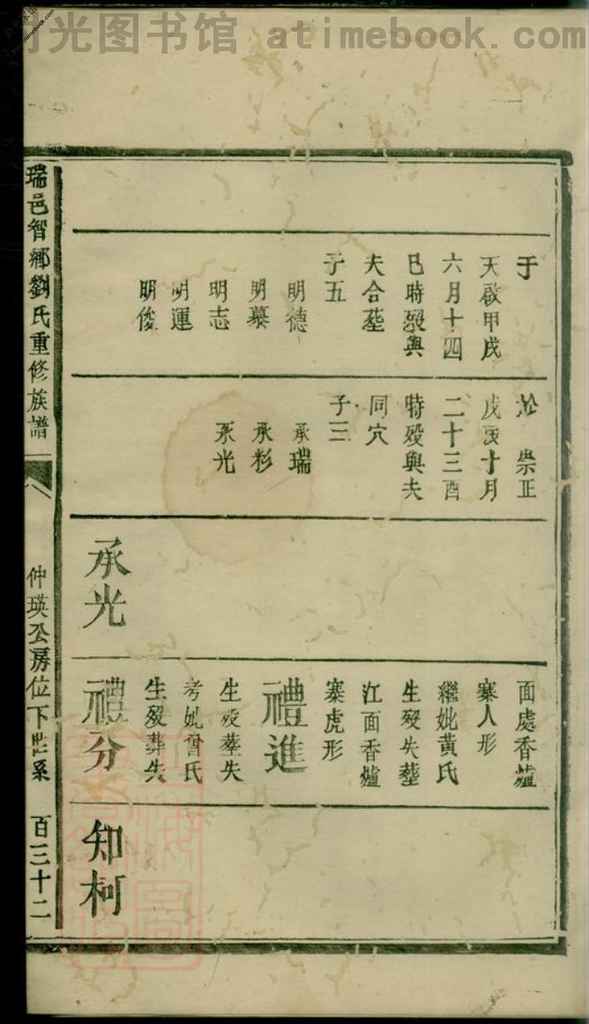 时光图书馆 atimebook.com
于
天啟甲戌
六月十四
巳時歿與
夫合𦵏
子五
明德
明慕
明志
明運
明俊
於 崇正
戊寅十月
二十三酉
時歿與夫
同穴
子三
承瑞
承彩
承光
承光
面處香爐
寨人形
繼妣黃氏
生歿失𦵏
江面香爐
寨虎形
禮進
生歿𦵏失
考妣曾氏
生歿葬失
禮分
知柯
瑞邑智鄉劉氏重修族譜
仲瑛公房位下世系
百三十二